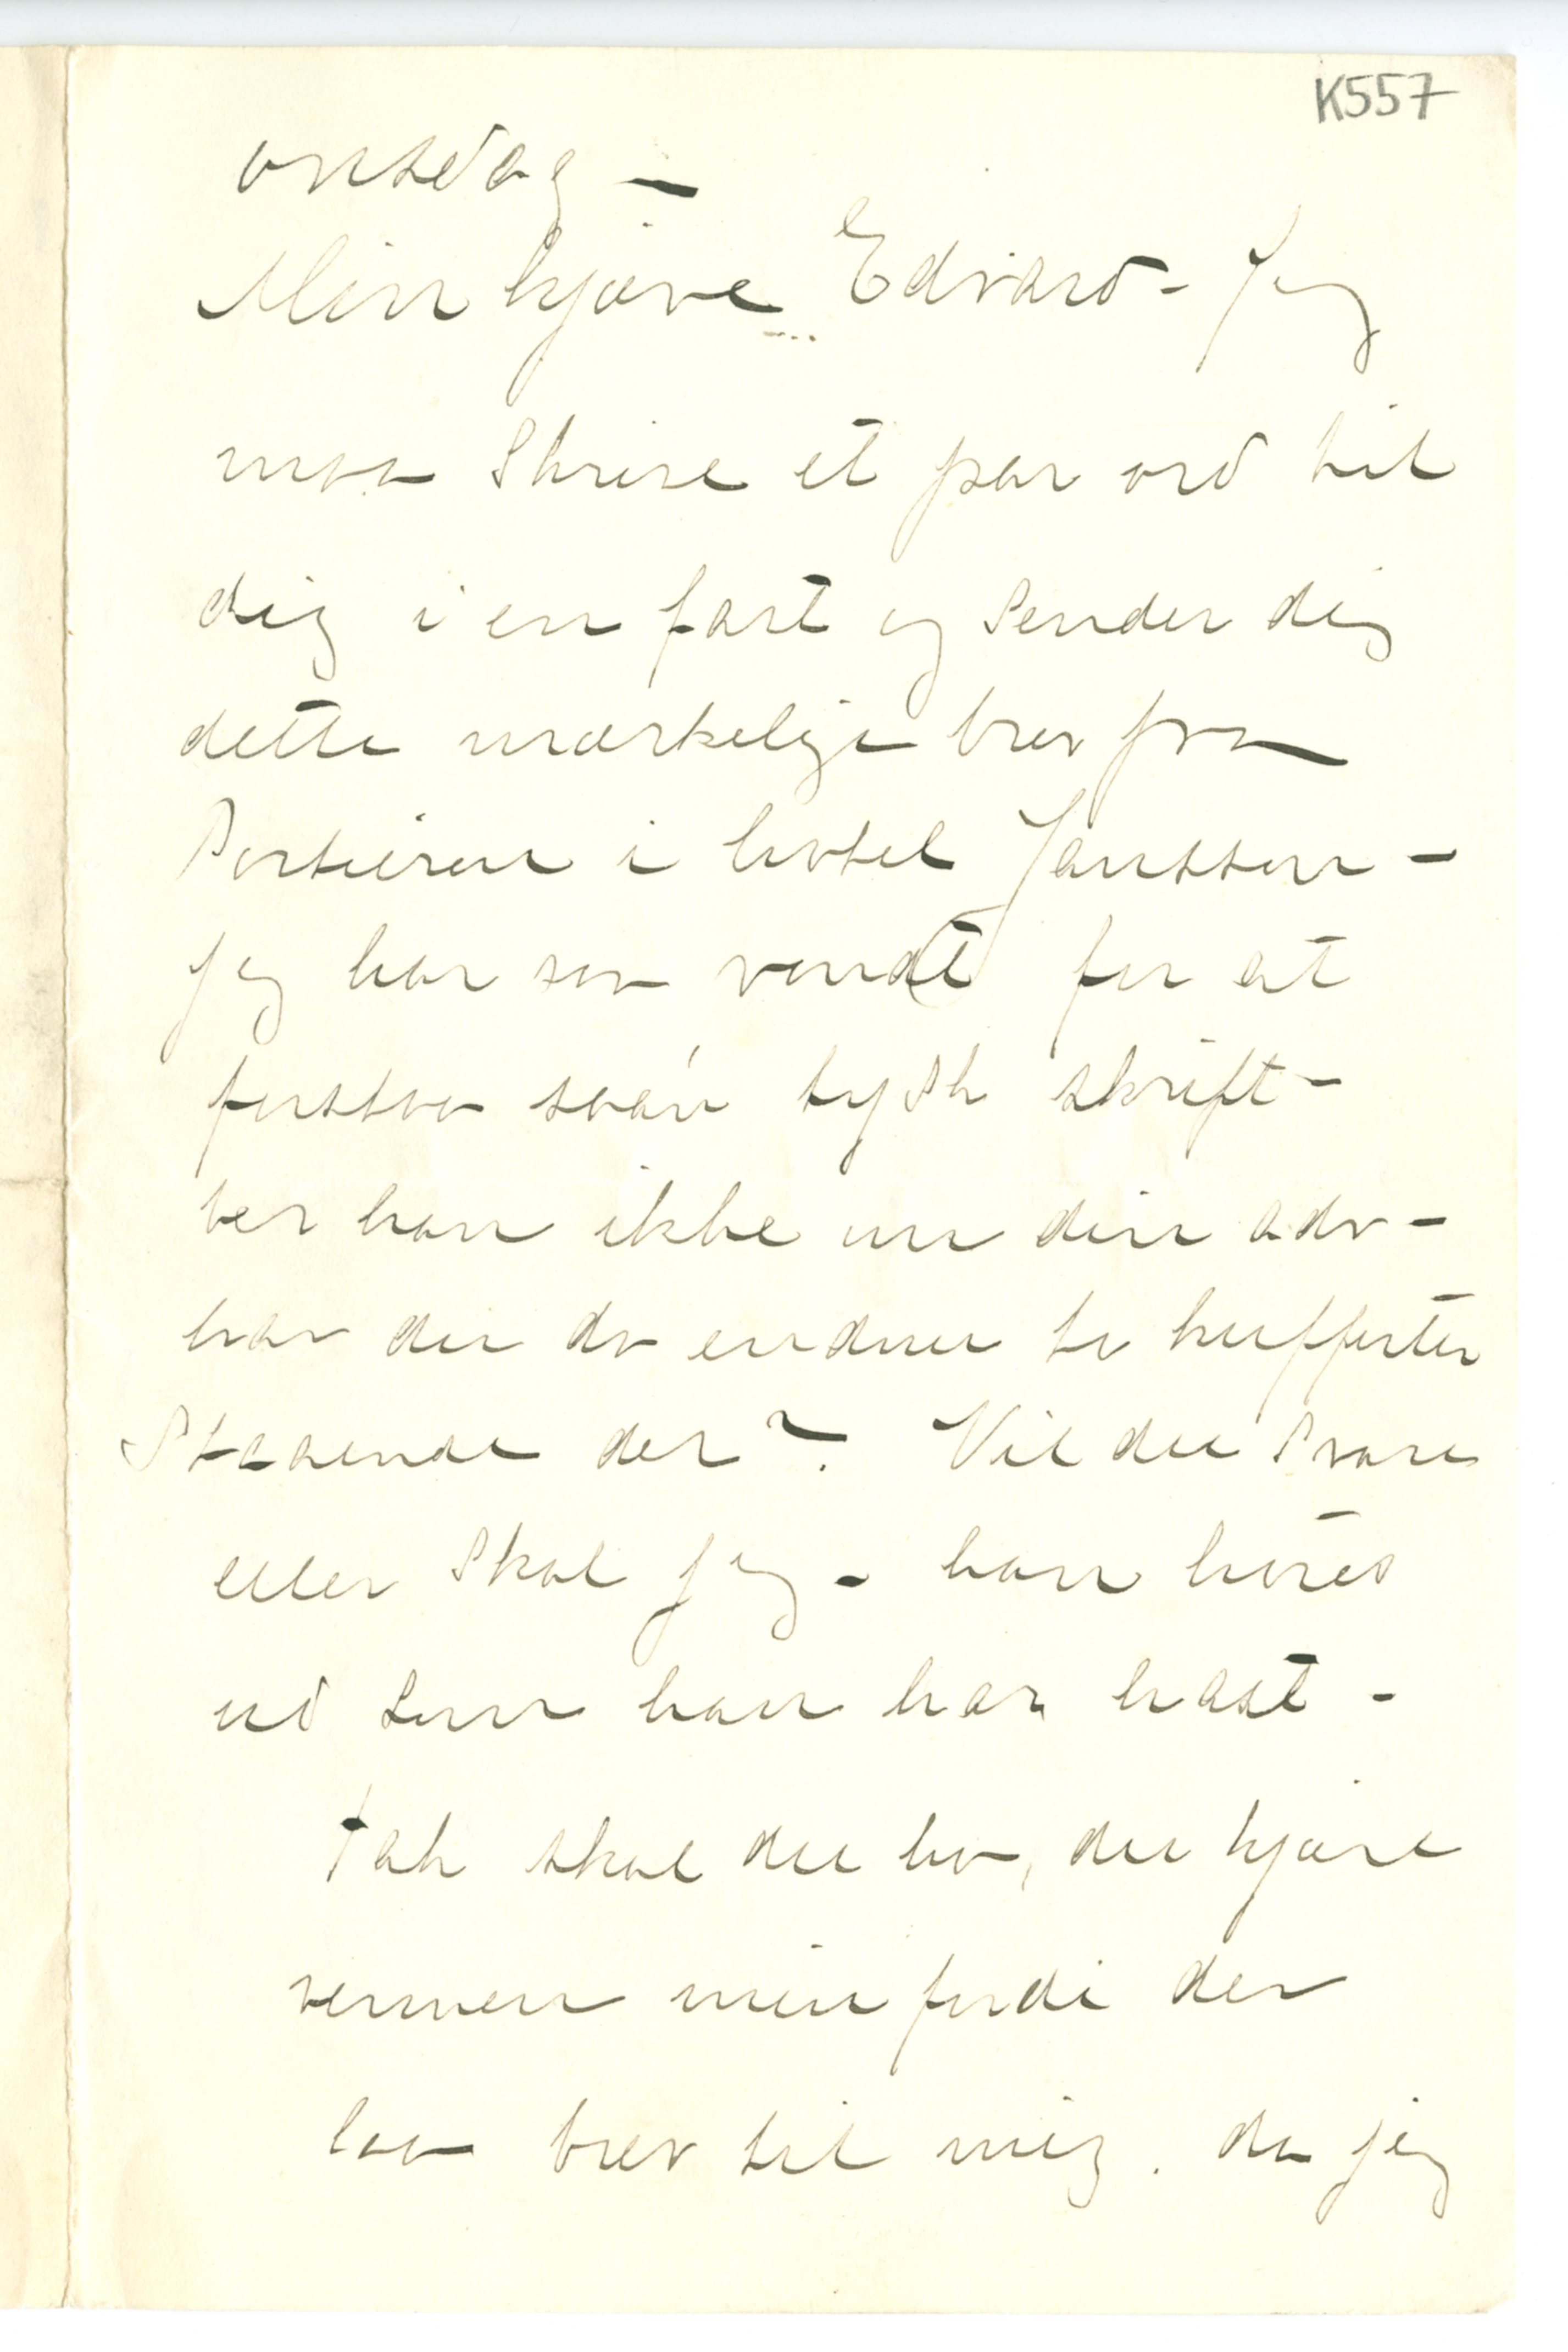 K557
onsdag –
Min kjære Edvard – Jeg
maa skrive et par ord til
dig i en fart og sender dig
dette mærkelige brev fra
Portieren i hotel Janssen –
jeg har saa vondt for at
forstaa saan tysk skrift –
ber han ikke om din adr –
har du da endnu to kufferter
Staaende der? Vil du svare
eller skal jeg – han høres
ud som han har hast –
Tak skal du ha, du kjære
vennen min fordi der
laa brev til mig. da jeg